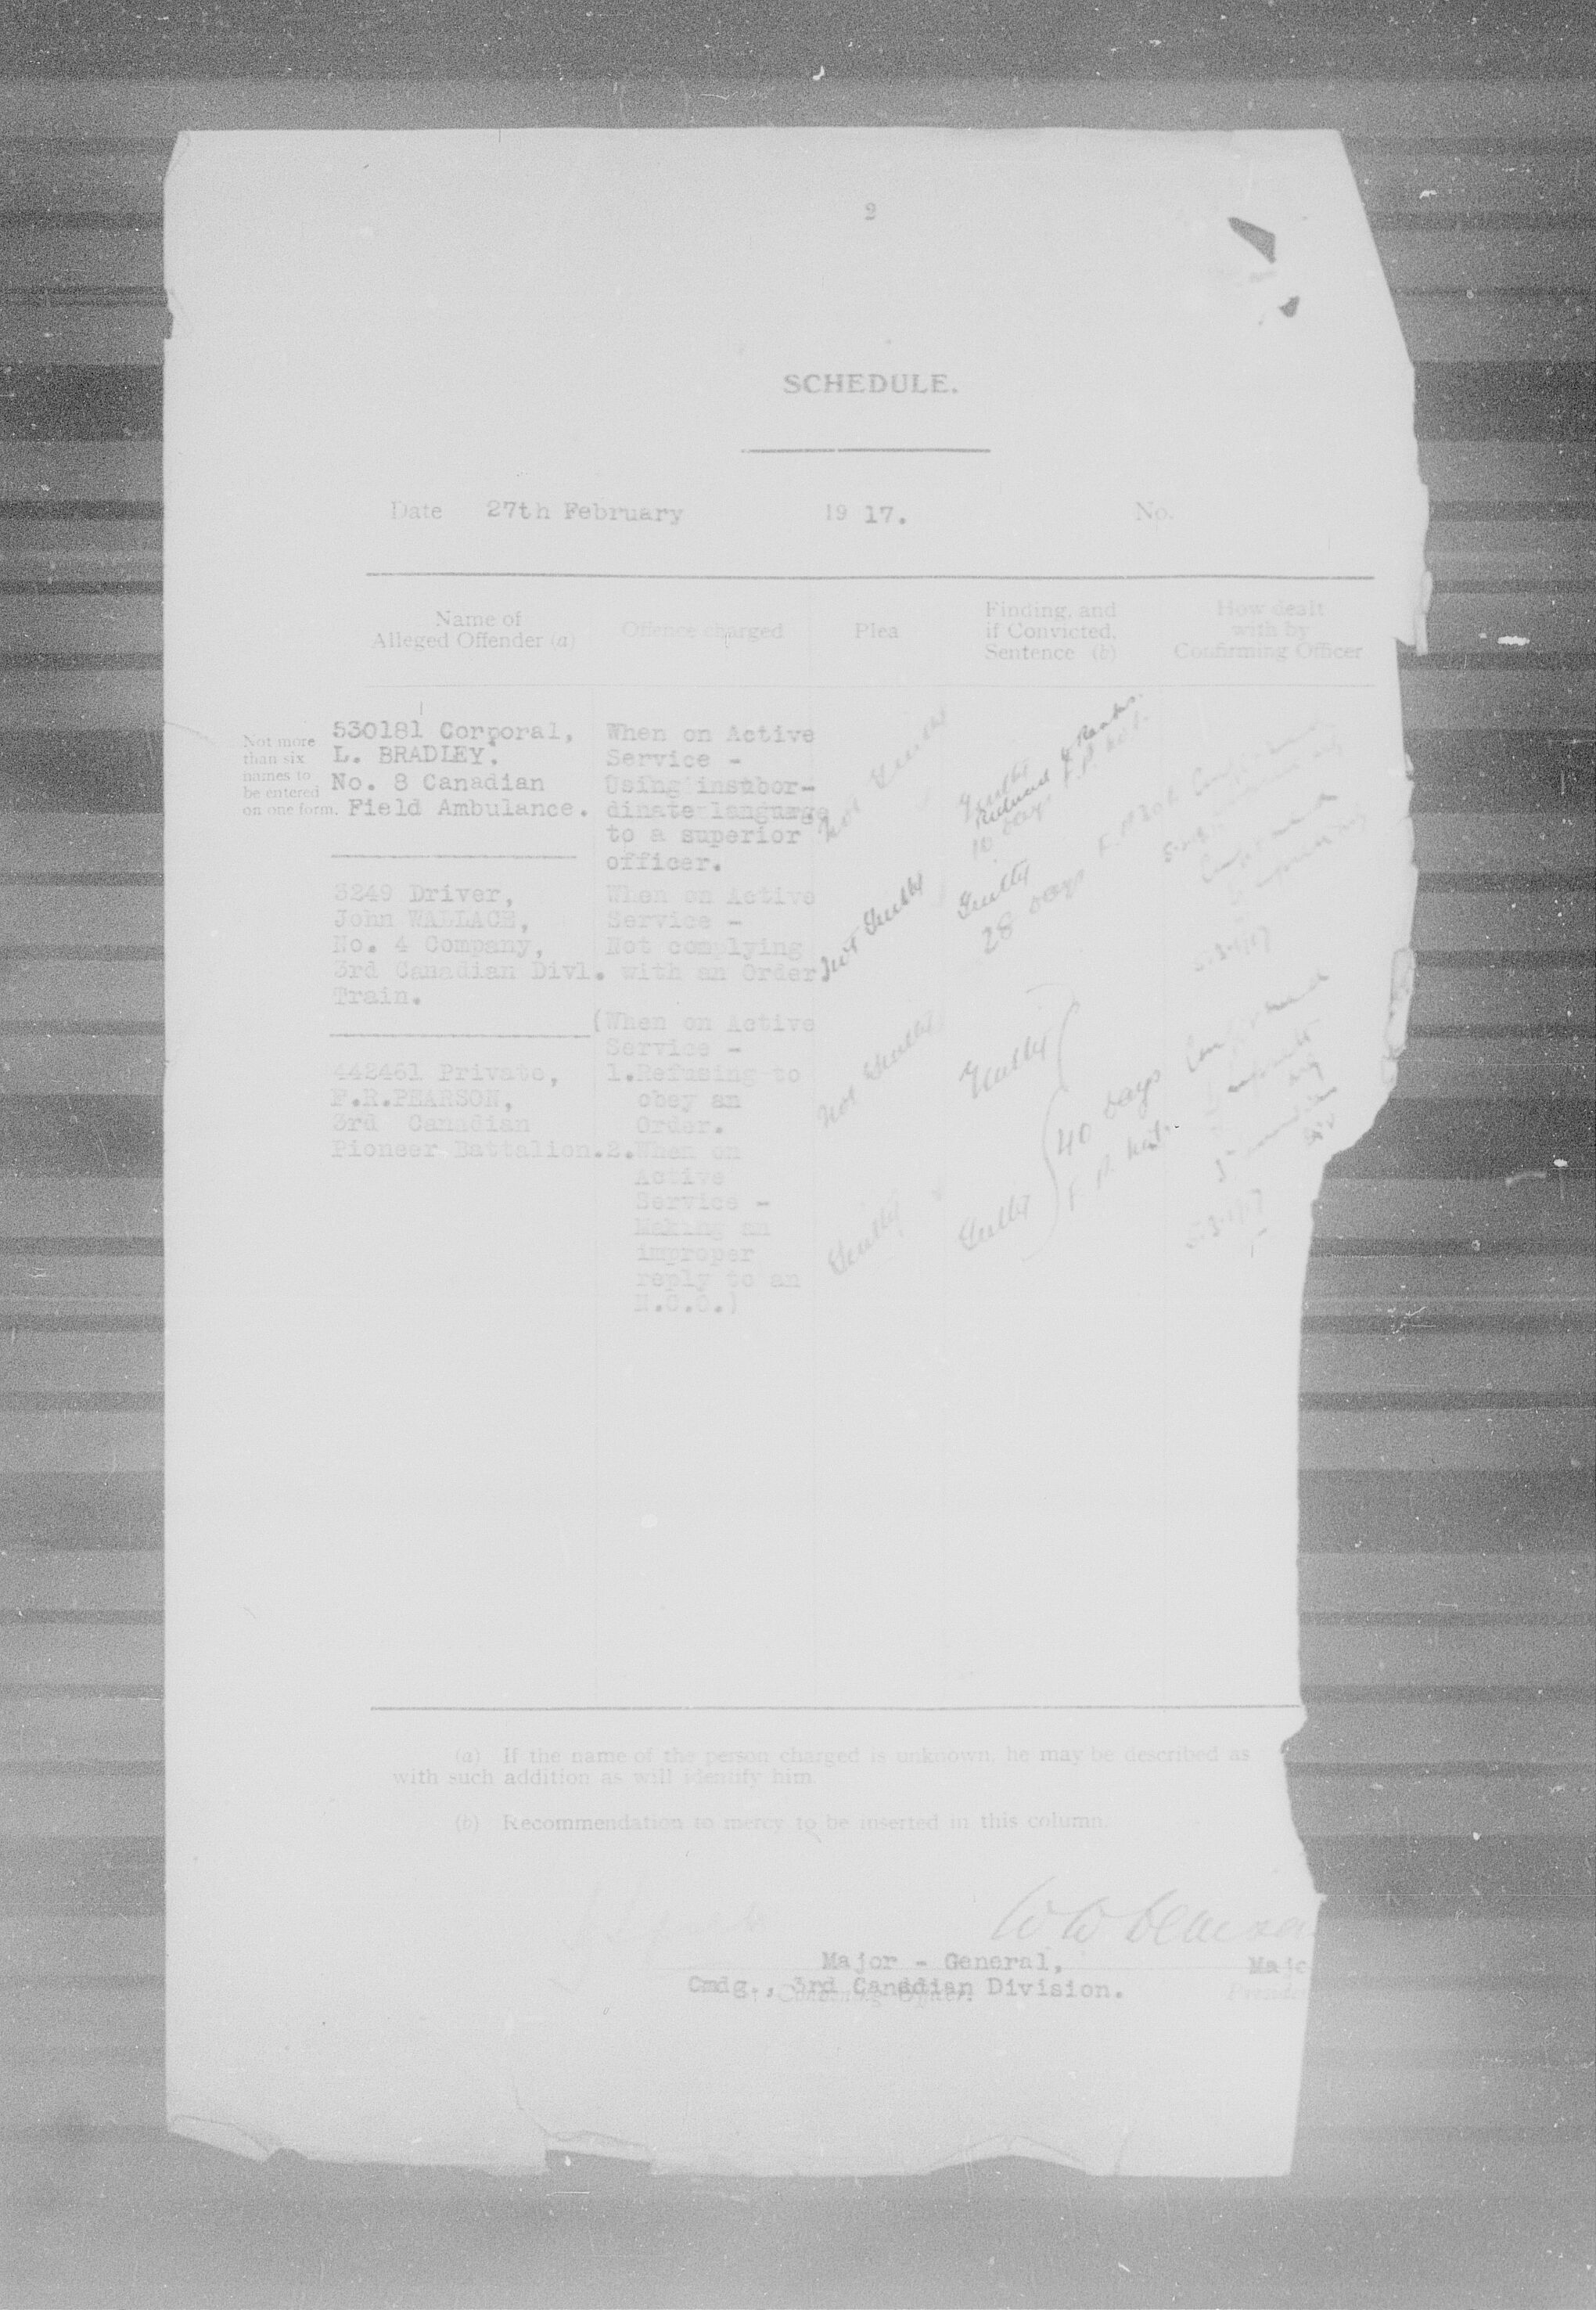 2
SCHEDULE.
Date 27th February 19 17. No.
Name of
Alleged Offender (a)
Offence charged
Plea
Finding, and
if Convicted,
Sentence (b)
How dealt
with by
Confirming Officer
Not more
than six
names to
be entered
on one form.
530181 Corporal,
L. BRADLEY.
No. 8 Canadian
Field Ambulance.
When on Active
Service -
Using insubor-
dinate language
to a superior
officer.
Not Guilty
Guilty
Reduced to Ranks.
10 days F.P. No 1.
Confirmed
3249 Driver,
John WALLACE,
No. 4 Company,
3rd Canadian Divl.
Train.
When on Active
Service -
Not complying
with an Order
Not Guilty
Guilty
28 days F.P. No 1.
Confirmed
5.3.1917
442461 Private,
F.R.PEARSON,
3rd Canadian
Pioneer Battalion.
(When on Active
Service -
1.Refusing to
obey an
Order.
2.When on
Active
Service -
Making an
improper
reply to an
N.C.O.)
Not Guilty
Guilty
Guilty
Guilty
40 days
F.P. No 1.
Confirmed
5.3.1917
(a) If the name of the person charged is unknown, he may be described as
with such addition as will identify him.
(b) Recommendation to mercy to be inserted in this column.
Major - General,
Cmdg., 3rd Canadian Division.
Convening Officer.
Majo
Presiden